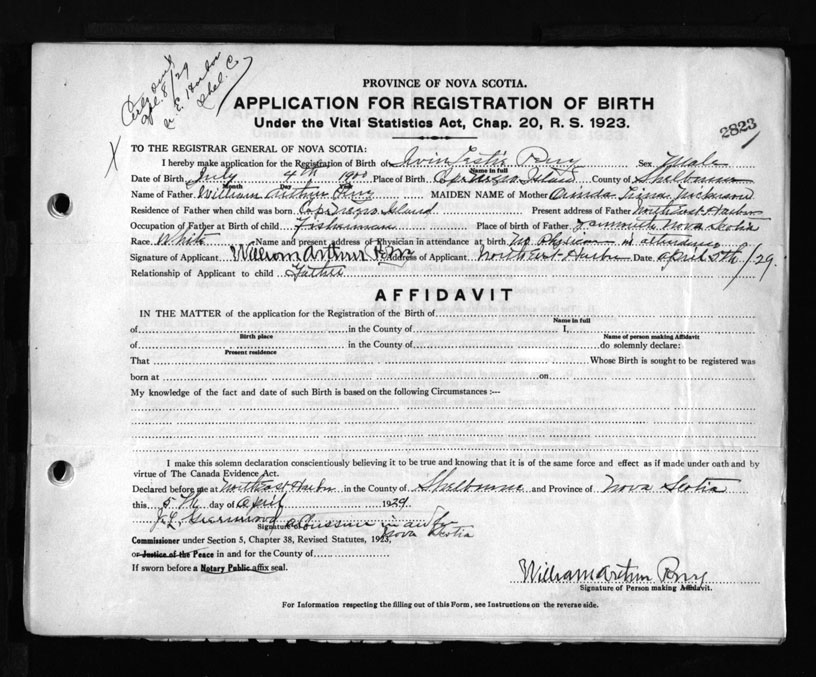 Apl. 8/29
N. E. Harbor
Shel. C.
PROVINCE OF NOVA SCOTIA.
APPLICATION FOR REGISTRATION OF BIRTH
Under the Vital Statistics Act, Chap. 20, R. S. 1923.
2823
X
TO THE REGISTRAR GENERAL OF NOVA SCOTIA:
I hereby make application for the Registration of Birth of Irvin Perry Sex Male
Name in full
Date of Birth July 4th 1900 Place of Birth Cape Negro Island County of Shelburne
Month Day Year
Name of Father William Arthur Perry MAIDEN NAME of Mother
Residence of Father when child was born Cape Negro Island Present address of Father Northeast Harbor
Occupation of Father at Birth of child Fisherman Place of birth of Father Yarmouth Nova Scotia
Race White Name and present address of Physician in attendance at birth no Physician in attendance
Signature of Applicant William Arthur Perry Address of Applicant Northeast Harbor Date April 5th /29.
Relationship of Applicant to child Father
AFFIDAVIT
IN THE MATTER of the application for the Registration of the Birth of
Name in full
of in the County of I,
Birth place Name of person making Affidavit
of in the County of do solemnly declare:
Present residence
That Whose Birth is sought to be registered was
born at on
My knowledge of the fact and date of such Birth is based on the following Circumstances :—
I make this solemn declaration conscientiously believing it to be true and knowing that it is of the same force and effect as if made under oath and by
virtue of The Canada Evidence Act.
Declared before me at Northeast Harbor in the County of Shelburne and Province of Nova Scotia
this 5th day of April 1929
J. L. a Commissioner
Signature of
Commissioner under Section 5, Chapter 38, Revised Statutes, 1923, Nova Scotia
or Justice of the Peace in and for the County of
If sworn before a Notary Public affix seal.
William Arthur Perry
Signature of Person making Affidavit.
For Information respecting the filling out of this Form, see Instructions on the reverse side.